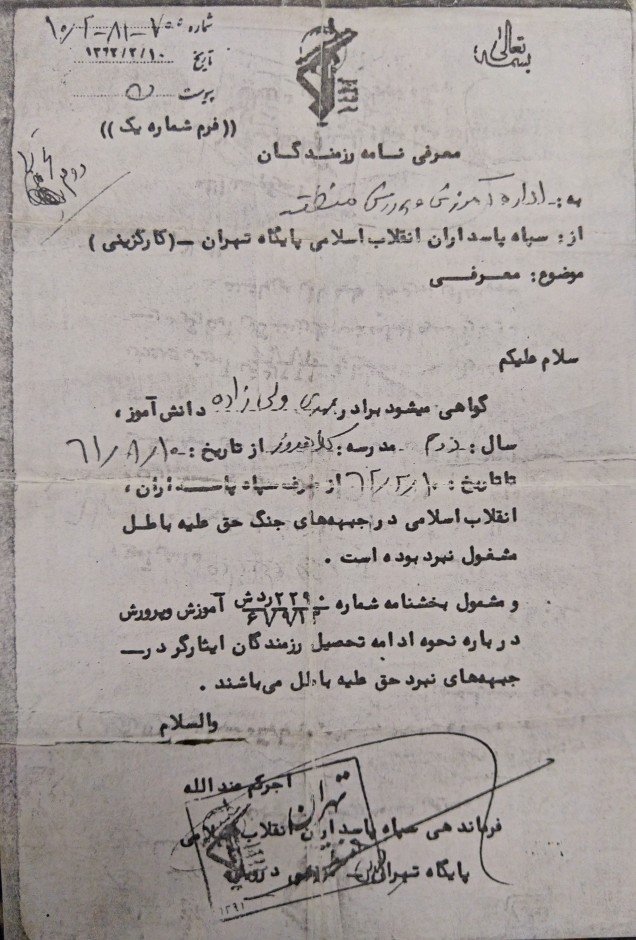 بسمه تعالی
شماره ۷-۸۱-۲/۱۰
تاریخ ۱۳۶۲/۲/۱۰
پیوست
((فرم شماره یک))
معرفی نامه رزمندگان
به: اداره آموزش و پرورش منطقه
از: سپاه پاسداران انقلاب اسلامی پایگاه تهران –(کارگزینی)
موضوع: معرفی
سلام علیکم
گواهی میشود برادر مهدی ولی زاده دانش آموز،
سال: دوم مدرسه: کلاهدوز از تاریخ: ۶۱/۸/۱۰
تا تاریخ: ۶۲/۲/۱۰ از طرف سپاه پاسداران،
انقلاب اسلامی در جبهه‌های جنگ حق علیه باطل
مشغول نبرد بوده است.
و مشمول بخشنامه شماره آموزش وپرورش
درباره نحوه ادامه تحصیل رزمندگان ایثارگر در
جبهه‌های نبرد حق علیه باطل می‌باشند.
والسلام
اجرکم عند الله
تهران
فرماندهی سپاه پاسداران انقلاب اسلامی
پایگاه تهران